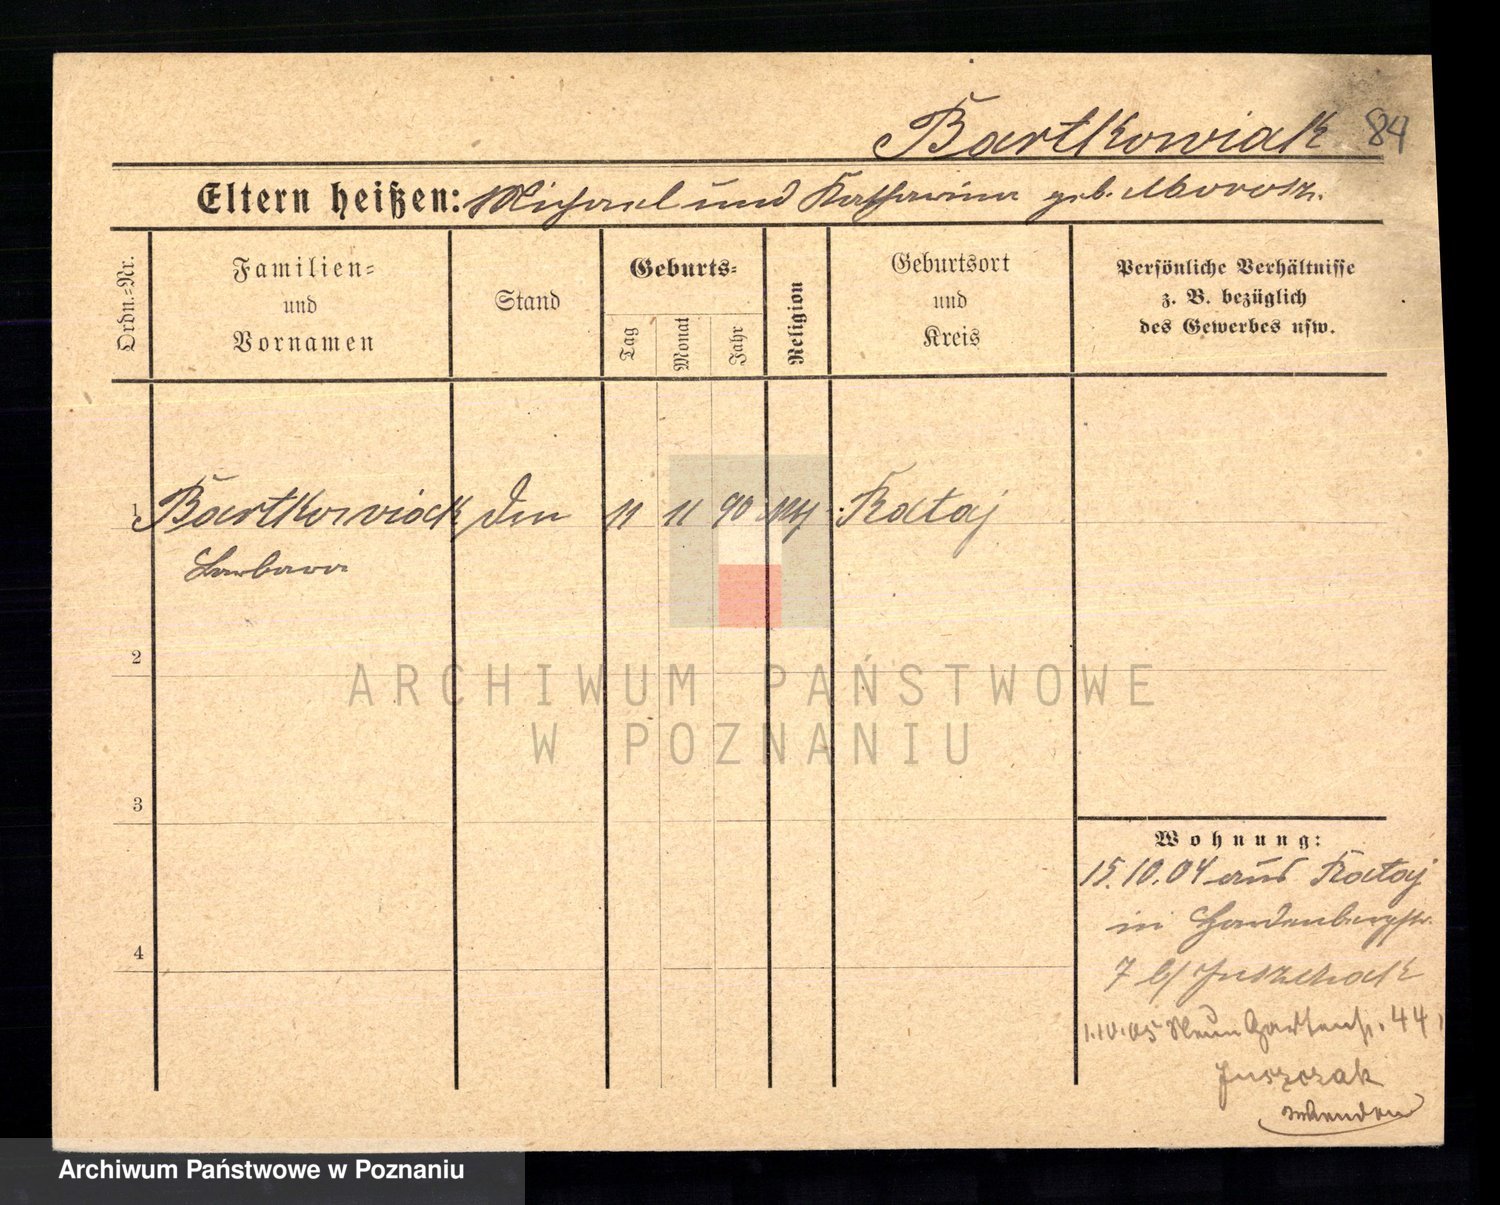 Bartkowiak 84
Eltern heißen: Michael und Katharina geb. Morosz.
Ordn.-Nr.
Familien-
und
Vornamen
Stand
Geburts-
Tag
Monat
Jahr
Religion
Geburtsort
und
Kreis
Persönliche Verhältnisse
z. B. bezüglich
des Gewerbes usw.
1 Bartkowiak 11 11 90 Rataj
Barbara
2
3
4
Wohnung:
15.10.04 aus Rataj
in Hardenbergstr.
7 b/ Juszchak
1.10.05 Neue Gartenstr. 44
Juszczak
ARCHIWUM PAŃSTWOWE
W POZNANIU
Archiwum Państwowe w Poznaniu